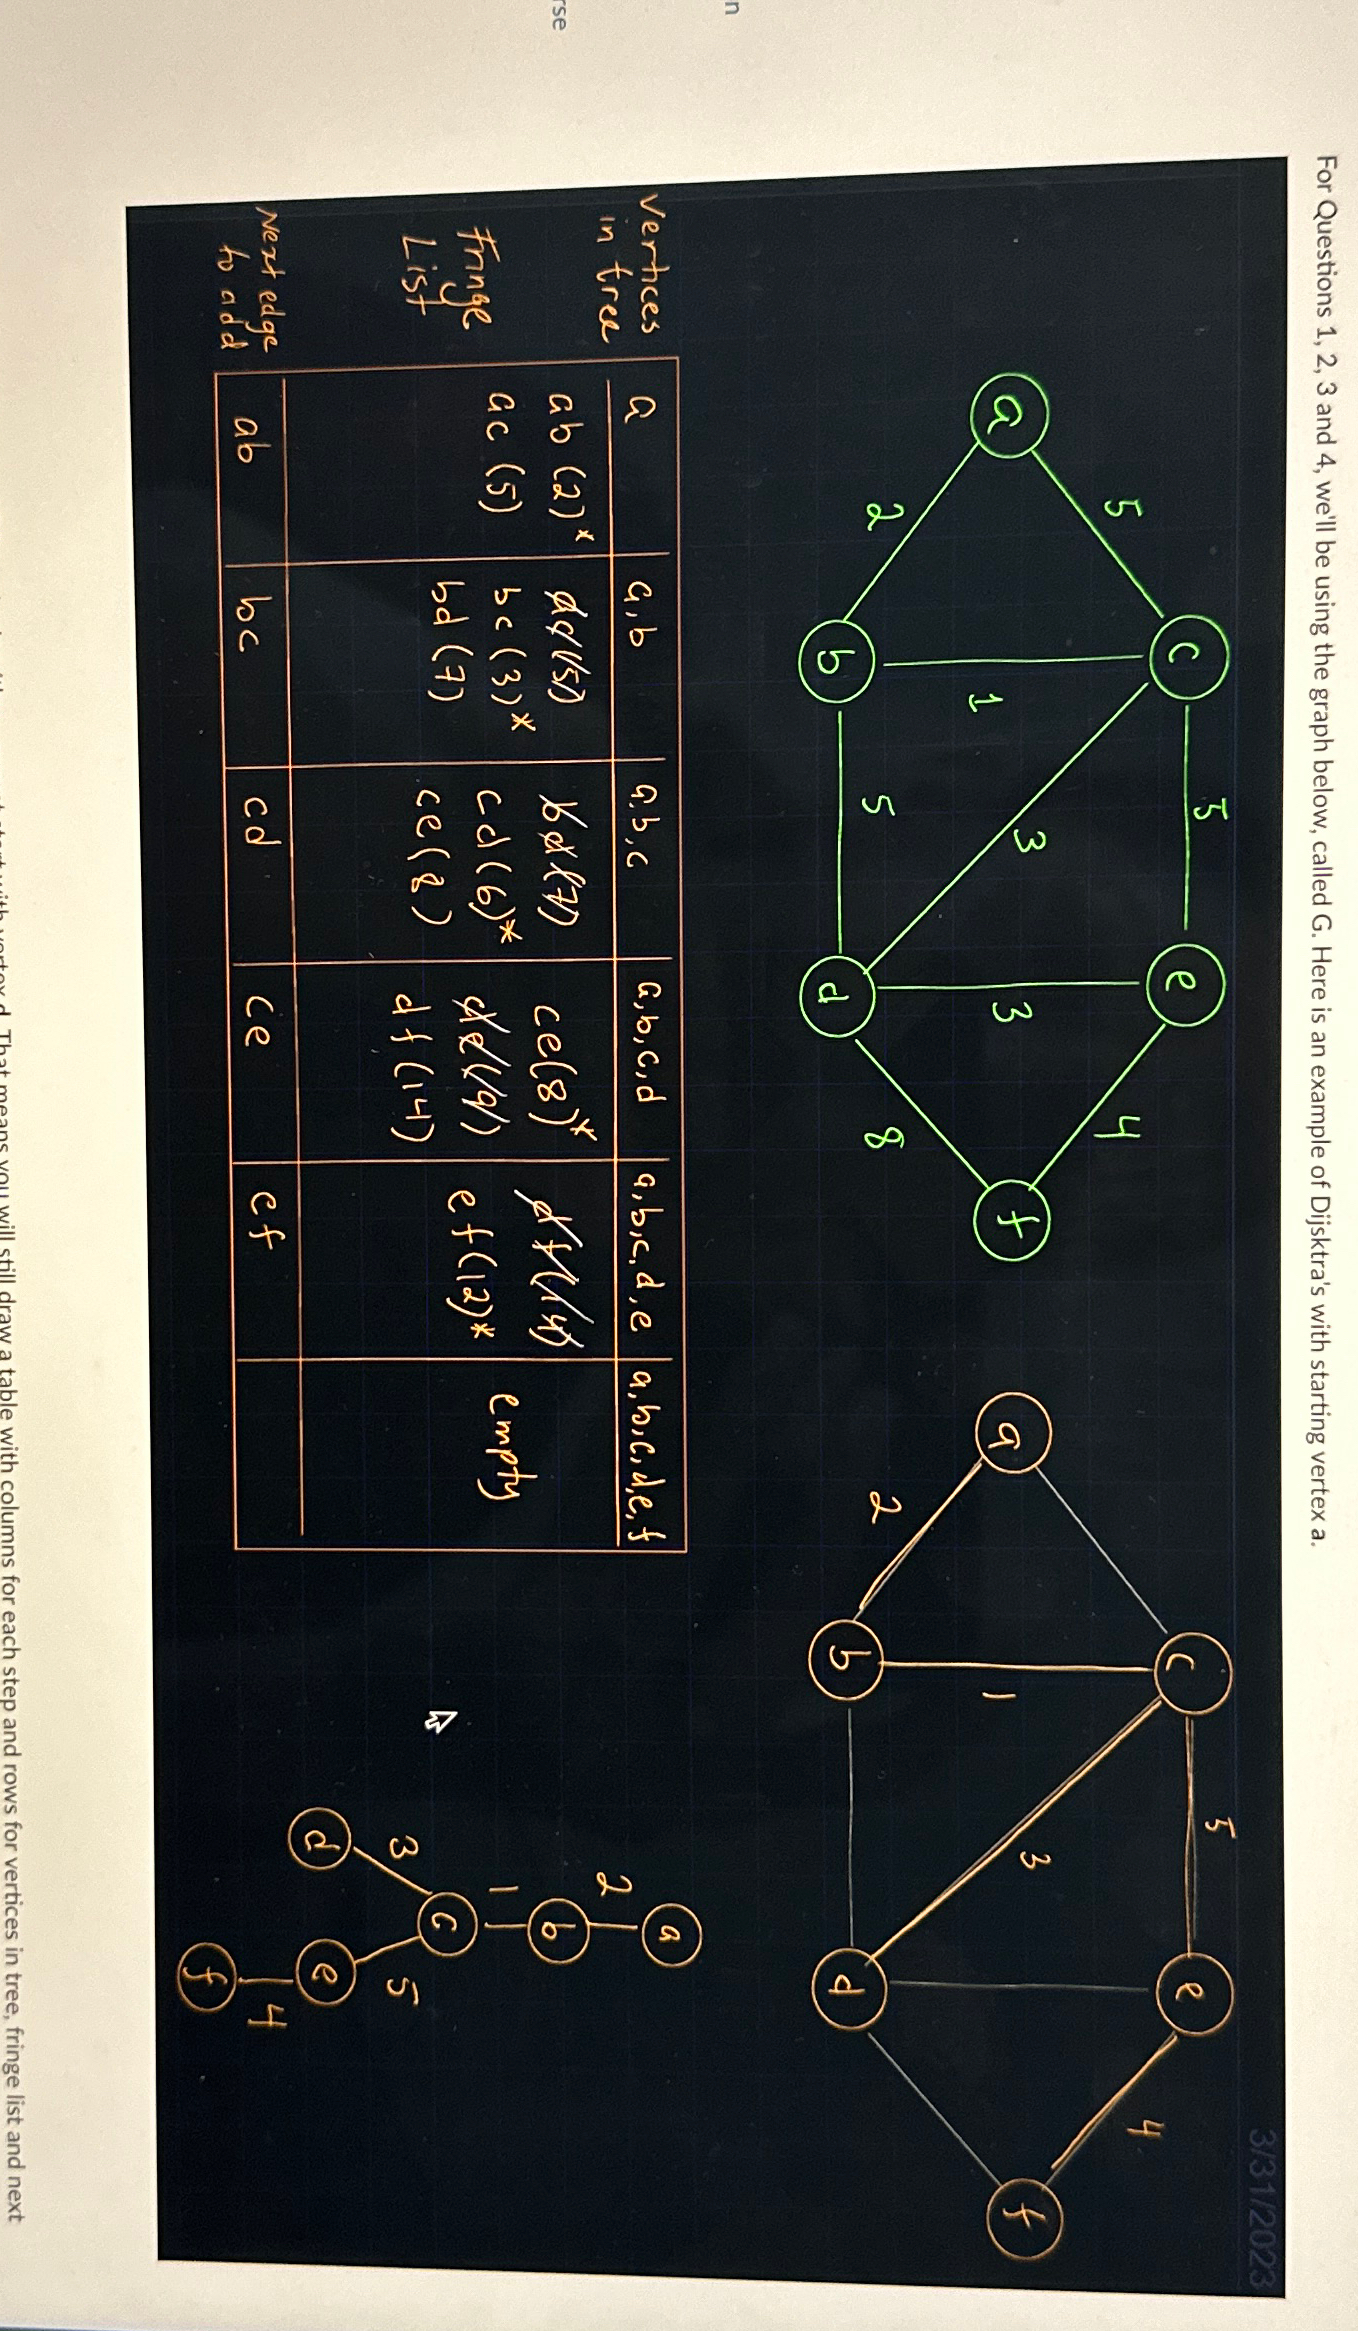 For Questions 1, 2, 3 and 4, we'll be using the graph below, called G. Here is an example of Dijsktra's with starting vertex a.
3/31/2023
a
b
c
d
e
f
5
2
1
5
3
5
3
4
8
a
b
c
d
e
f
2
1
3
5
4
Vertices in tree
a
a,b
a,b,c
a,b,c,d
a,b,c,d,e
a,b,c,d,e,f
Fringe List
ab (2)*
ac (5)
ac (5)
bc (3)*
bd (7)
bd (7)
cd (6)*
ce (8)
ce (8)*
de (9)
df (14)
df (14)
ef (12)*
empty
Next edge to add
ab
bc
cd
ce
ef
a
2
b
1
c
3
5
d
e
4
f
n
rse
start with vertex d. That means you will still draw a table with columns for each step and rows for vertices in tree, fringe list and next